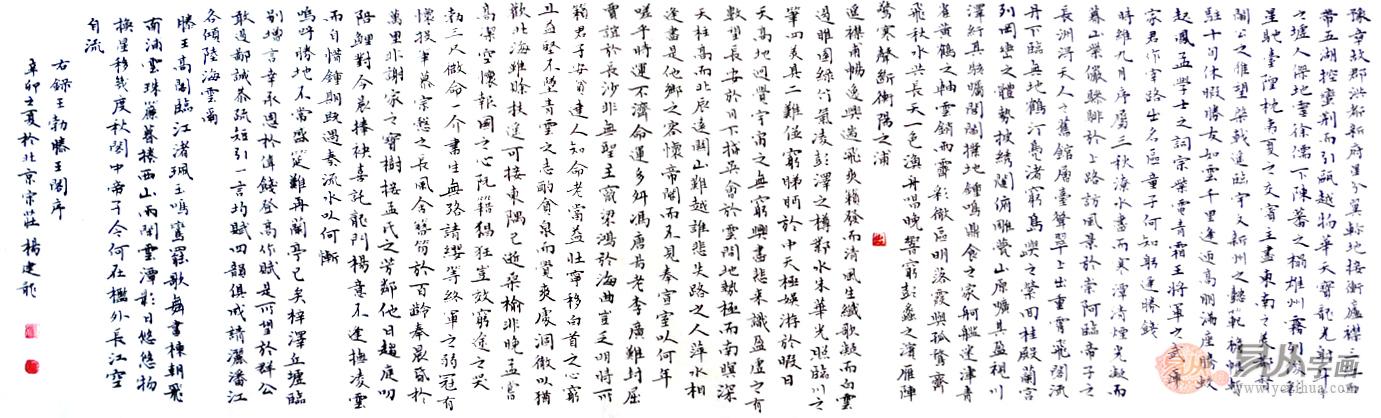 豫章故郡洪都新府星分翼軫地接衡廬襟三江而
帶五湖控蠻荊而引甌越物華天寶龍光射斗牛
之墟人傑地靈徐孺下陳蕃之榻雄州霧列俊采
星馳臺隍枕夷夏之交賓主盡東南之美都督
閻公之雅望棨戟遙臨宇文新州之懿範襜帷暫
駐十旬休暇勝友如雲千里逢迎高朋滿座騰蛟
起鳳孟學士之詞宗紫電青霜王將軍之武庫
家君作宰路出名區童子何知躬逢勝餞
時維九月序屬三秋潦水盡而寒潭清煙光凝而
暮山紫儼驂騑於上路訪風景於崇阿臨帝子之
長洲得天人之舊館層臺聳翠上出重霄飛閣流
丹下臨無地鶴汀鳧渚窮島嶼之縈回桂殿蘭宮
列岡巒之體勢披繡闥俯雕甍山原曠其盈視川
澤紆其駭矚閭閻撲地鐘鳴鼎食之家舸艦迷津青
雀黃鶴之軸雲銷雨霽彩徹區明落霞與孤鶩齊
飛秋水共長天一色漁舟唱晚響窮彭蠡之濱雁陣
驚寒聲斷衡陽之浦
遙襟甫暢逸興遄飛爽籟發而清風生纖歌凝而白雲
遏睢園綠竹氣凌彭澤之樽鄴水朱華光照臨川之
筆四美具二難並窮睇眄於中天極娛游於暇日
天高地迥覺宇宙之無窮興盡悲來識盈虛之有
數望長安於日下指吳會於雲間地勢極而南溟深
天柱高而北辰遠關山難越誰悲失路之人萍水相
逢盡是他鄉之客懷帝閽而不見奉宣室以何年
嗟乎時運不濟命運多舛馮唐易老李廣難封屈
賈誼於長沙非無聖主竄梁鴻於海曲豈乏明時所
賴君子安貧達人知命老當益壯寧移白首之心窮
且益堅不墜青雲之志酌貪泉而覺爽處涸轍以猶
歡北海雖賒扶搖可接東隅已逝桑榆非晚孟嘗
高潔空懷報國之心阮籍猖狂豈效窮途之哭
勃三尺微命一介書生無路請纓等終軍之弱冠有
懷投筆慕宗愨之長風舍簪笏於百齡奉晨昏於
萬里非謝家之寶樹接孟氏之芳鄰他日趨庭叨
陪鯉對今晨捧袂喜託龍門楊意不逢撫凌雲
而自惜鍾期既遇奏流水以何慚
嗚呼勝地不常盛筵難再蘭亭已矣梓澤丘墟臨
別贈言幸承恩於偉餞登高作賦是可望於群公
敢竭鄙誠恭疏短引一言均賦四韻俱成請灑潘江
各傾陸海雲爾
滕王高閣臨江渚珮玉鳴鸞罷歌舞畫棟朝飛
南浦雲珠簾暮捲西山雨閒雲潭影日悠悠物
換星移幾度秋閣中帝子今何在檻外長江空
自流
右錄王勃滕王閣序
辛卯之夏於北京宗莊楊建龍
易从字画